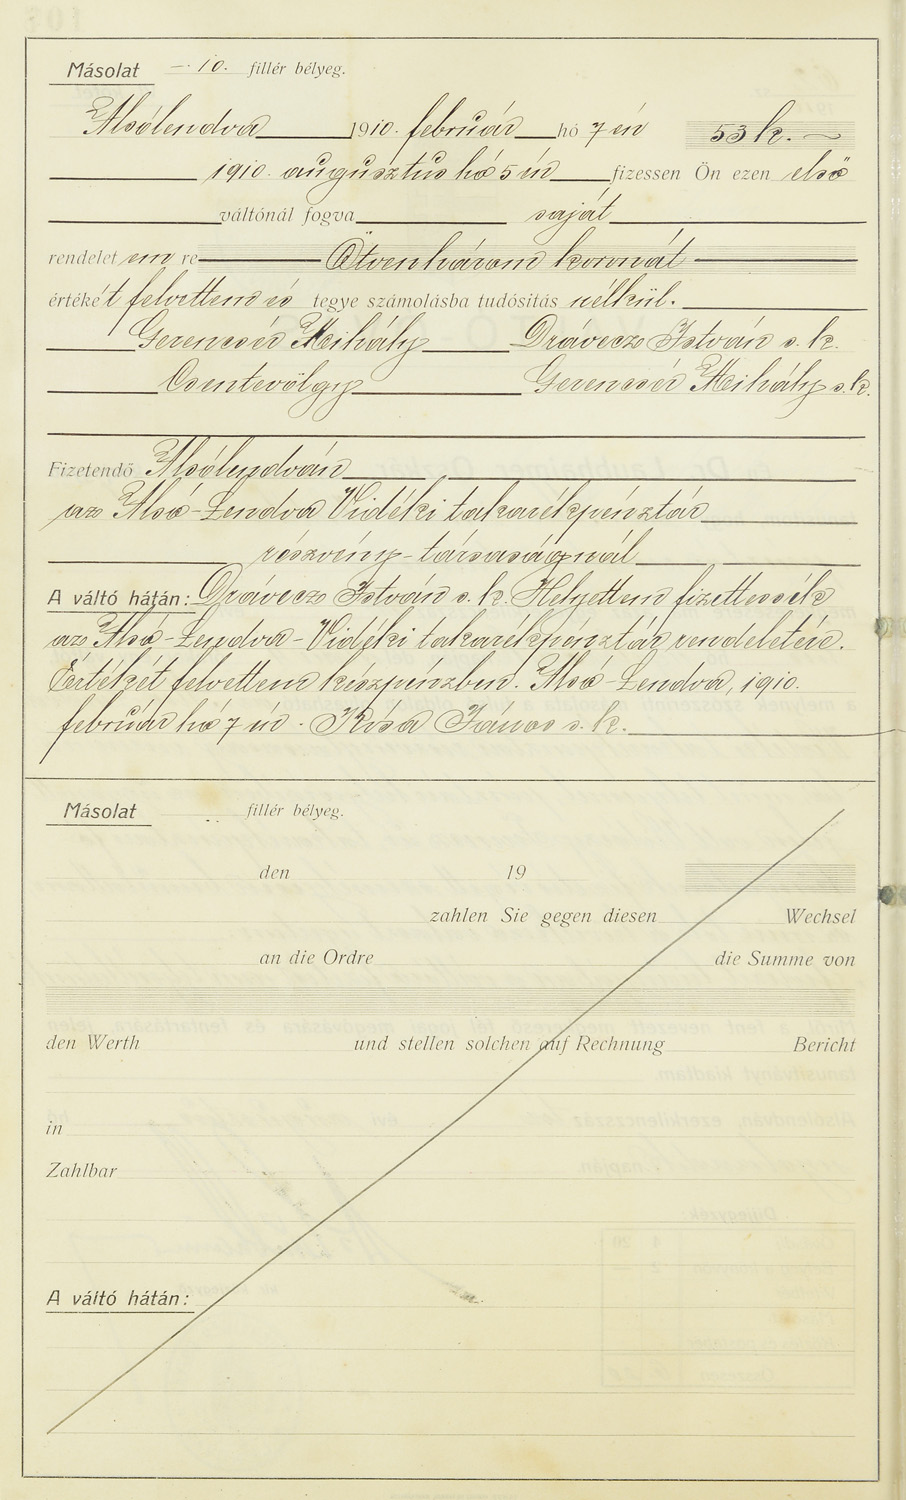 Másolat – 10. fillér bélyeg.
Alsólendva 1910. február hó 7 én 53 k.
1910. augusztus hó 5 én fizessen Ön ezen első
váltónál fogva saját
rendelet em re Ötvenhárom koronát
értékét felvettem és tegye számolásba tudósítás nélkül.
Gerencsér Mihály Drávecz István s. k.
Csentevölgy Gerencsér Mihály s. k.
Fizetendő Alsólendván
az Alsó-Lendva Vidéki takarékpénztár
részvény-társaságnál
A váltó hátán: Drávecz István s. k. Helyettem fizettessék
az Alsó-Lendva-Vidéki takarékpénztár rendeletére.
Értékét felvettem készpénzben. Alsó-Lendva, 1910.
február hó 7 én. Kósa János s. k.
Másolat fillér bélyeg.
den 19
zahlen Sie gegen diesen Wechsel
an die Ordre die Summe von
den Werth und stellen solchen auf Rechnung Bericht
in
Zahlbar
A váltó hátán: